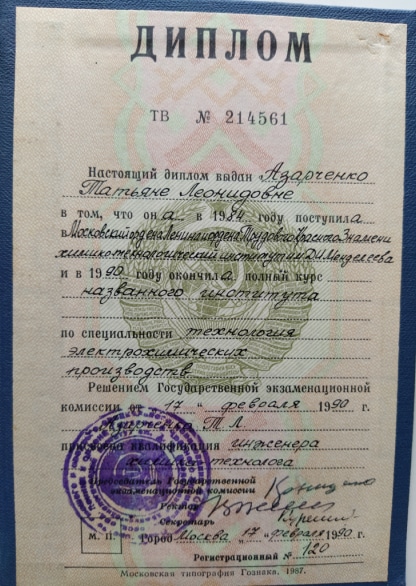 ДИПЛОМ
ТВ № 214561
Настоящий диплом выдан Азарченко
Татьяне Леонидовне
в том, что она в 1984 году поступила
в Московский ордена Ленина и ордена Трудового Красного Знамени
химико-технологический институт им. Д.И. Менделеева
и в 1990 году окончила полный курс
названного института
по специальности технология
электрохимических
производств
Решением Государственной экзаменационной
комиссии от „17“ февраля 1990 г.
Т. Л.
присвоена квалификация инженера
химика-технолога
Председатель Государственной
экзаменационной комиссии
Ректор
Секретарь
М. П. Город Москва „17“ февраля 1990 г.
Регистрационный № 120
Московская типография Гознака. 1987.